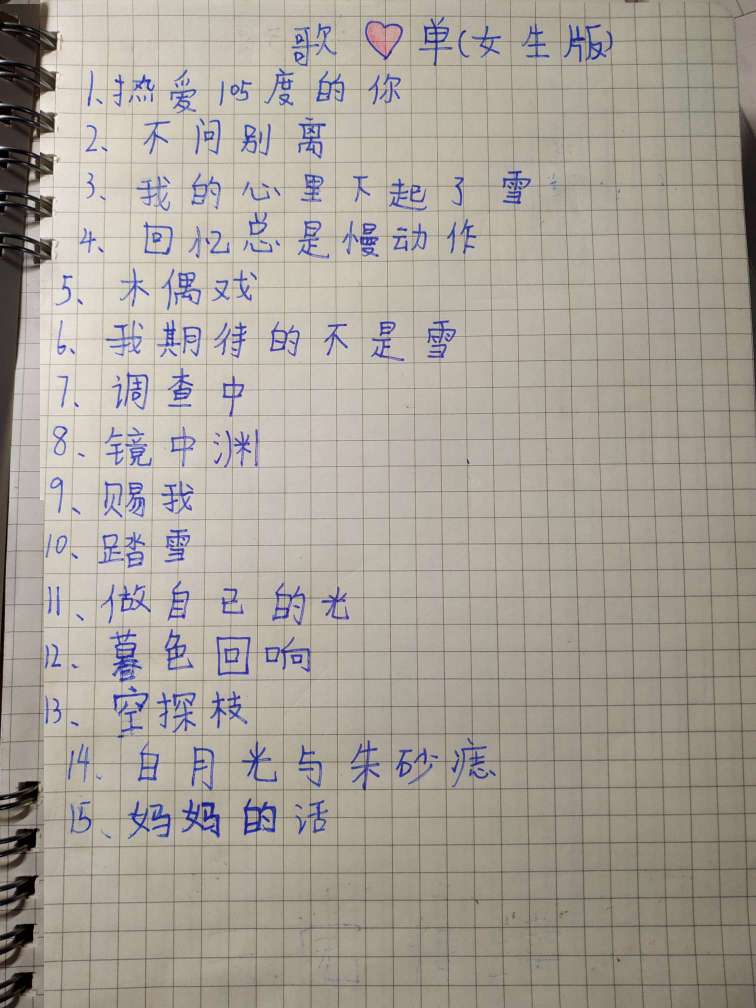 歌单(女生版)
1、热爱105度的你
2、不问别离
3、我的心里下起了雪
4、回忆总是慢动作
5、木偶戏
6、我期待的不是雪
7、调查中
8、镜中渊
9、赐我
10、踏雪
11、做自己的光
12、暮色回响
13、空探枝
14、白月光与朱砂痣
15、妈妈的话